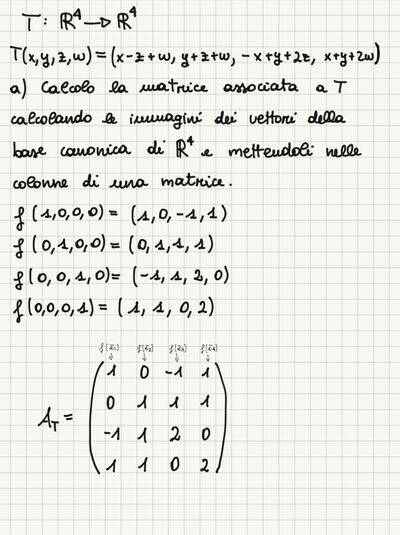 T: ℝ⁴ → ℝ⁴
T(x,y,z,w) = (x-z+w, y+z+w, -x+y+2z, x+y+2w)
a) Calcolo la matrice associata a T
calcolando le immagini dei vettori della
base canonica di ℝ⁴ e mettendoli nelle
colonne di una matrice.
f(1,0,0,0) = (1,0,-1,1)
f(0,1,0,0) = (0,1,1,1)
f(0,0,1,0) = (-1,1,2,0)
f(0,0,0,1) = (1,1,0,2)
f(e₁) f(e₂) f(e₃) f(e₄)
↓ ↓ ↓ ↓
1 0 -1 1
0 1 1 1
A_T =
-1 1 2 0
1 1 0 2